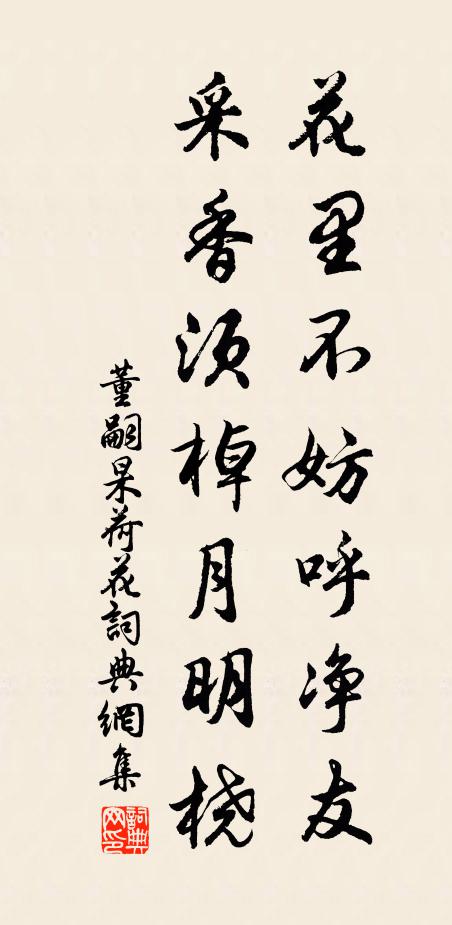 花里不妨呼净友
采香须棹月明桡
董嗣杲荷花詞典網集
詞典网印